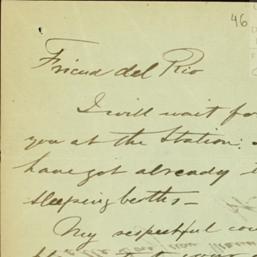 46
Friend del Rio
I will wait for
you at the Station;
have got already
sleeping berths -
My respectful